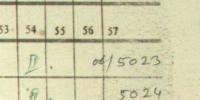 53 54 55 56 57
II. 06/5023
5024